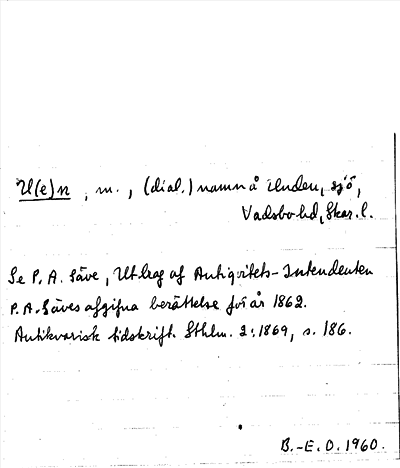 U(e)n, m., (dial.) namn å Unden, sjö,
Vadsbo hd, Skar. l.
Se P. A. Säve, Utdrag af Antiqvitets-Intendenten
P. A. Säves afgifna berättelse för år 1862.
Antikvarisk tidskrift. Sthlm. 2:1869, s. 186.
B.-E. O. 1960.